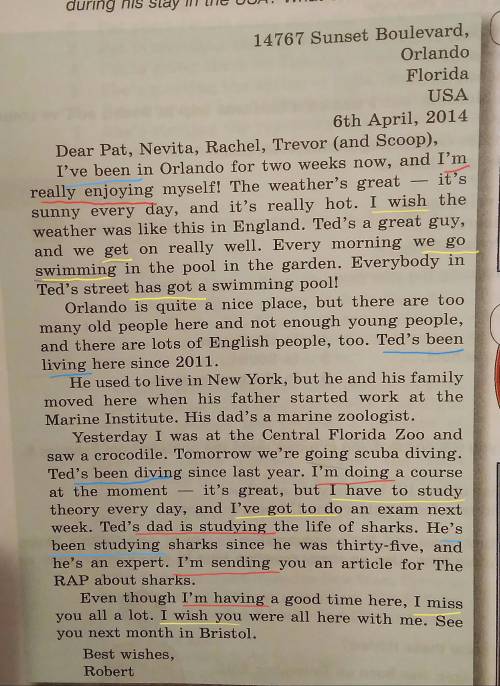 during his stay in the USA? What
14767 Sunset Boulevard,
Orlando
Florida
USA
6th April, 2014
Dear Pat, Nevita, Rachel, Trevor (and Scoop),
I've been in Orlando for two weeks now, and I'm
really enjoying myself! The weather's great — it's
sunny every day, and it's really hot. I wish the
weather was like this in England. Ted's a great guy,
and we get on really well. Every morning we go
swimming in the pool in the garden. Everybody in
Ted's street has got a swimming pool!
Orlando is quite a nice place, but there are too
many old people here and not enough young people,
and there are lots of English people, too. Ted's been
living here since 2011.
He used to live in New York, but he and his family
moved here when his father started work at the
Marine Institute. His dad's a marine zoologist.
Yesterday I was at the Central Florida Zoo and
saw a crocodile. Tomorrow we're going scuba diving.
Ted's been diving since last year. I'm doing a course
at the moment — it's great, but I have to study
theory every day, and I've got to do an exam next
week. Ted's dad is studying the life of sharks. He's
been studying sharks since he was thirty-five, and
he's an expert. I'm sending you an article for The
RAP about sharks.
Even though I'm having a good time here, I miss
you all a lot. I wish you were all here with me. See
you next month in Bristol.
Best wishes,
Robert